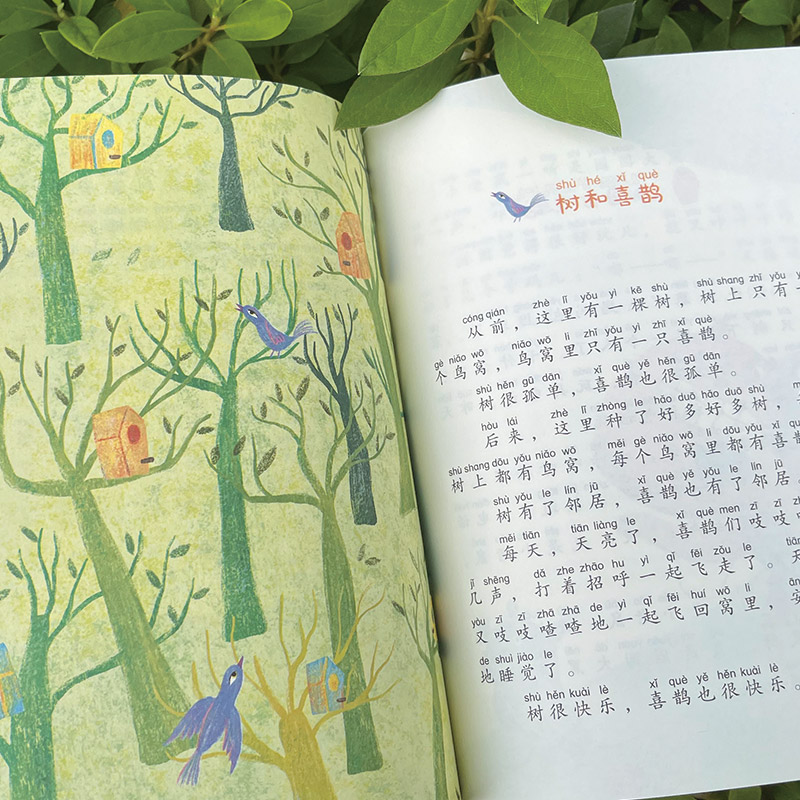 shù hé xǐ què
树和喜鹊
cóng qián zhè lǐ yǒu yì kē shù shù shang zhǐ yǒu
从前，这里有一棵树，树上只有一
gè niǎo wō niǎo wō lǐ zhǐ yǒu yì zhī xǐ què
个鸟窝，鸟窝里只有一只喜鹊。
shù hěn gū dān xǐ què yě hěn gū dān
树很孤单，喜鹊也很孤单。
hòu lái zhè lǐ zhòng le hǎo duō hǎo duō shù
后来，这里种了好多好多树，
shù shang dōu yǒu niǎo wō měi gè niǎo wō lǐ dōu yǒu xǐ què
树上都有鸟窝，每个鸟窝里都有喜鹊
shù yǒu le lín jū xǐ què yě yǒu le lín jū
树有了邻居，喜鹊也有了邻居。
měi tiān tiān liàng le xǐ què men zī zī
每天，天亮了，喜鹊们吱吱
jǐ shēng dǎ zhe zhāo hu yì qǐ fēi zǒu le tiān
几声，打着招呼一起飞走了。天
yòu zī zī zhā zhā de yì qǐ fēi huí wō lǐ ān
又吱吱喳喳地一起飞回窝里，安
de shuì jiào le
地睡觉了。
shù hěn kuài lè xǐ què yě hěn kuài lè
树很快乐，喜鹊也很快乐。